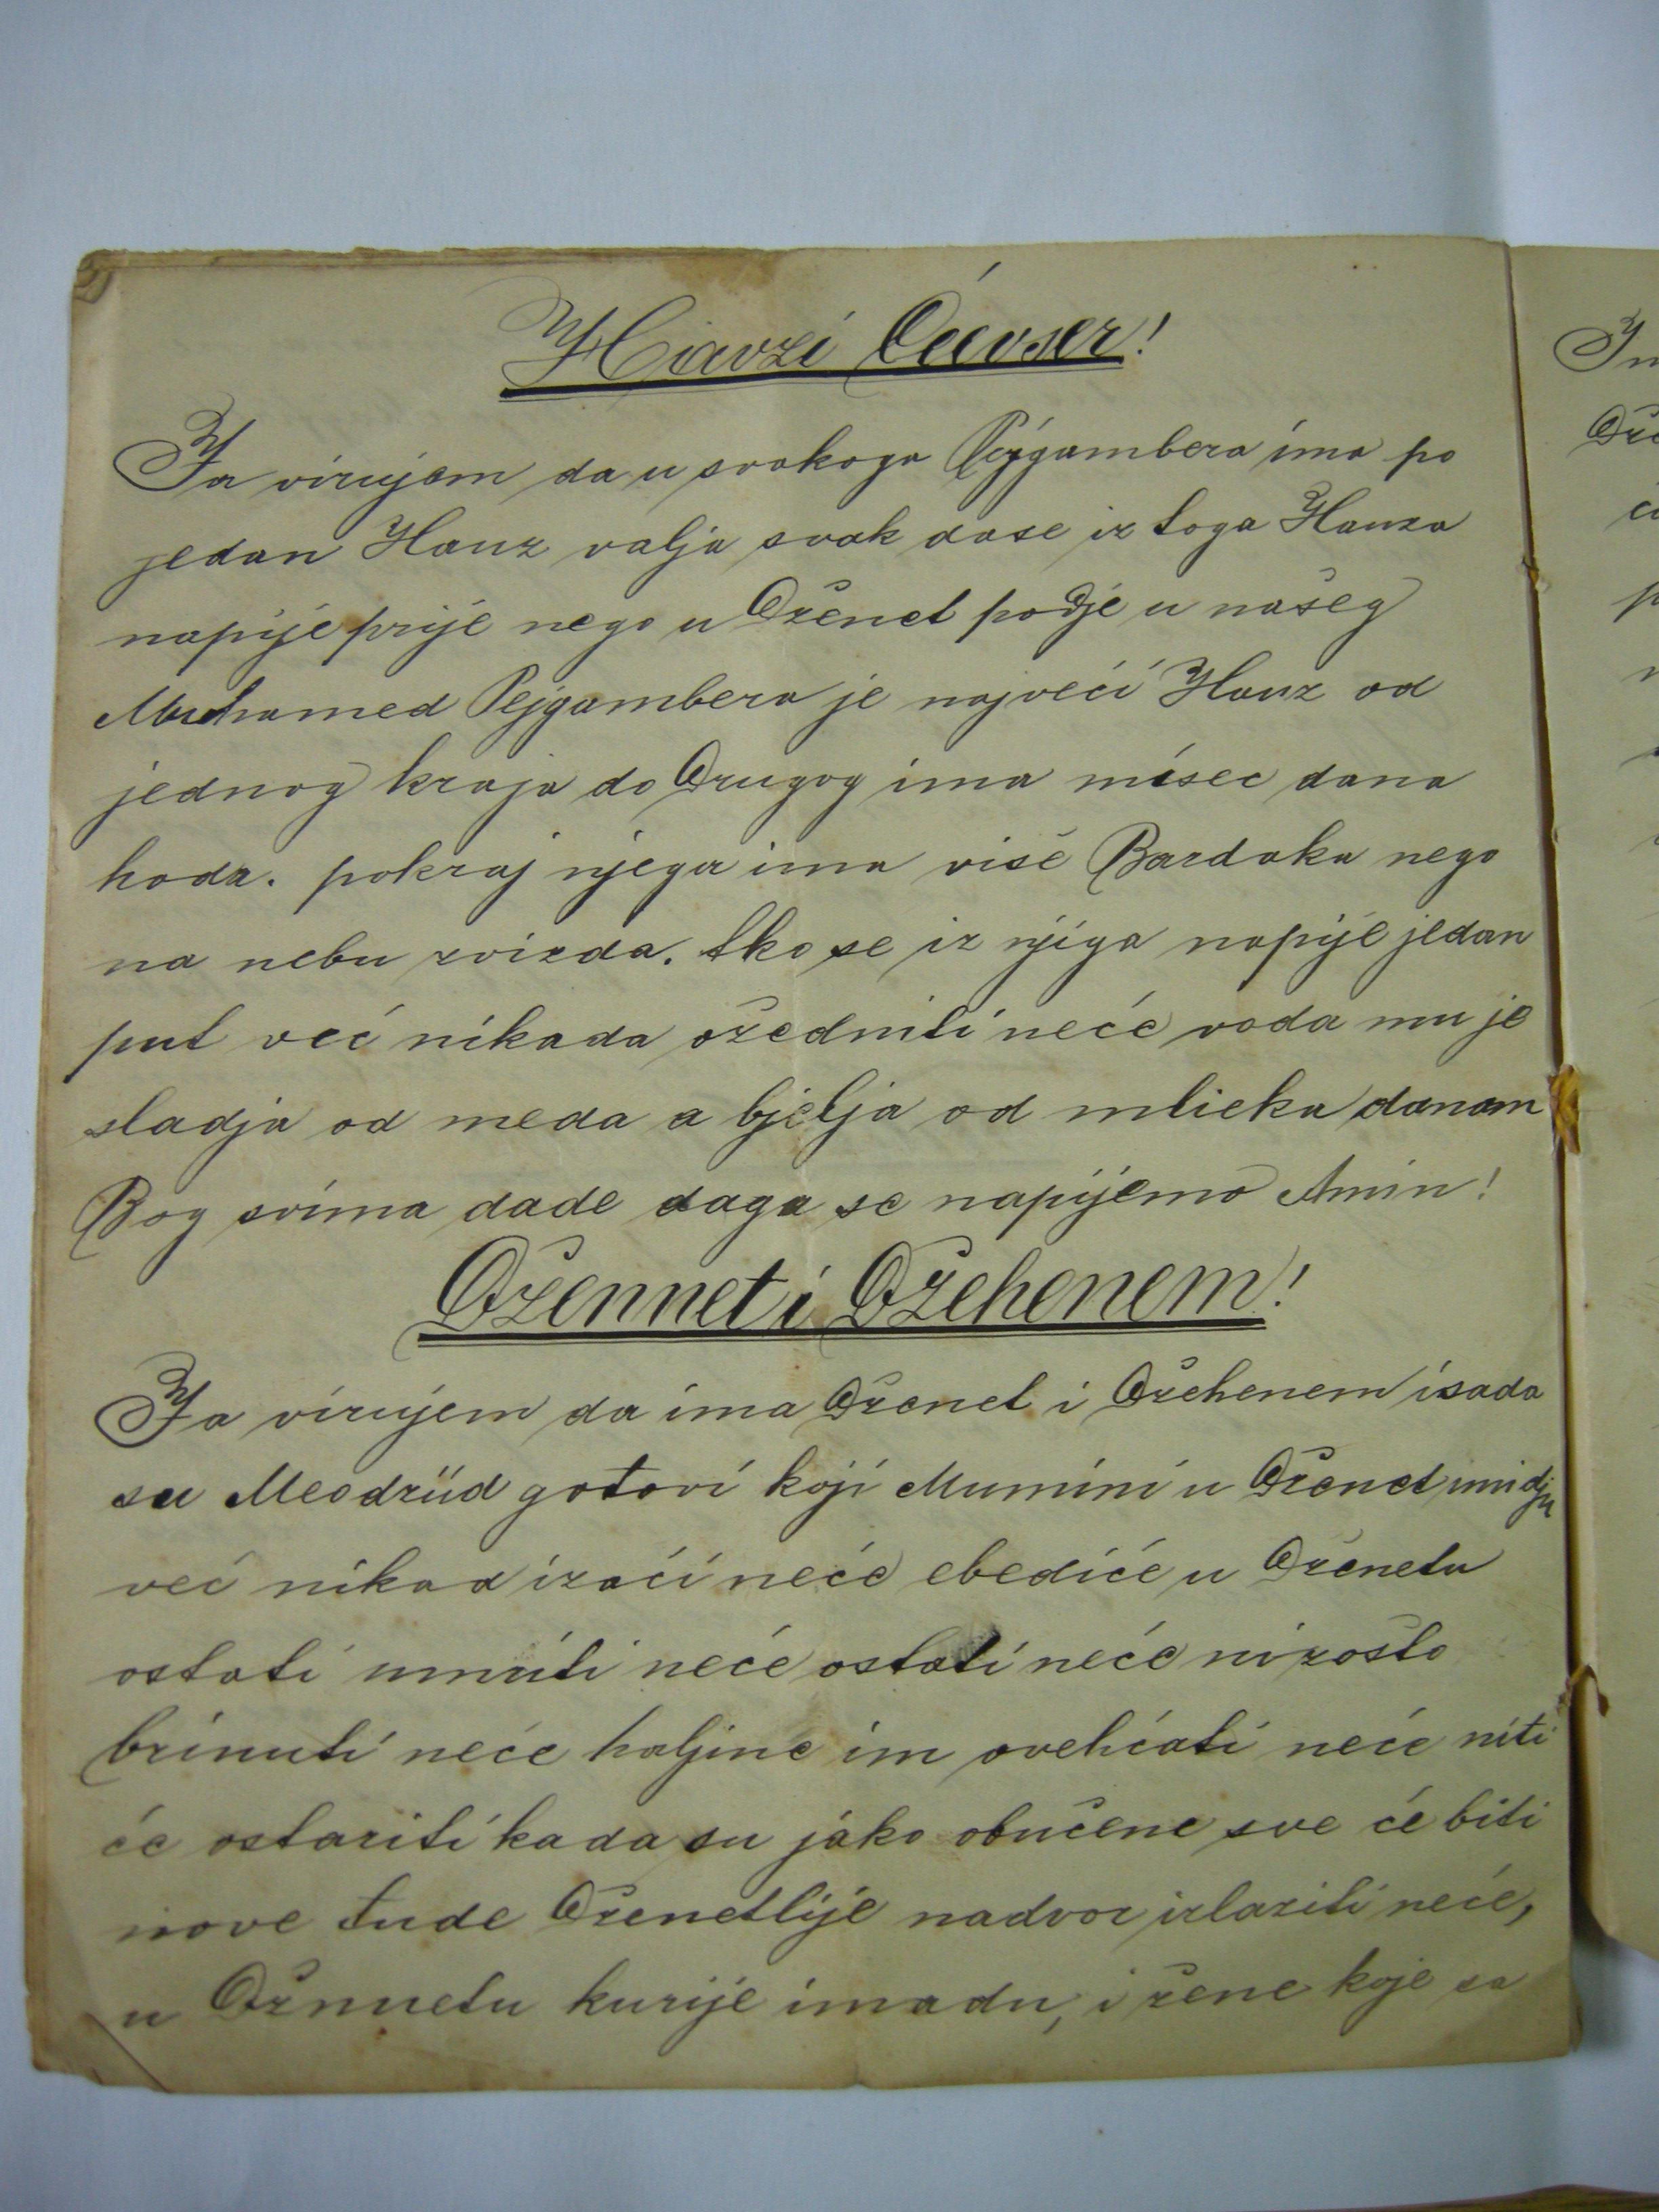 Havzi Ćevser!
Ja virujem da u svakoga Pejgambera ima po
jedan Hauz valja svak dase iz toga Hauza
napije prije nego u Dženet podje u našeg
Muhamed Pejgambera je najveći Hauz od
jednog kraja do Drugog ima misec dana
hoda. pokraj njega ima više Bardaka nego
na nebu zvizda. tko se iz njiga napije jedan
put već nikada ožedniti neće voda mu je
sladja od meda a bjelja od mlieka danam
Bog svima dade daga se napijemo Amin!
Džennet i Džehenem!
Ja virujem da ima Dženet i Džehenem isada
su Meodžüd gotovi koji Mumini u Dženet unidju
već nikad izaći neće ebediće u Dženetu
ostati umriti neće ostati neće nizašto
brinuti neće haljine im ovehćati neće niti
će ostariti kada su jako obučene sve će biti
nove tude Dženetlije nadvor izlaziti neće,
u Džnnetu hurije imadu, i žene koje sa
Dže